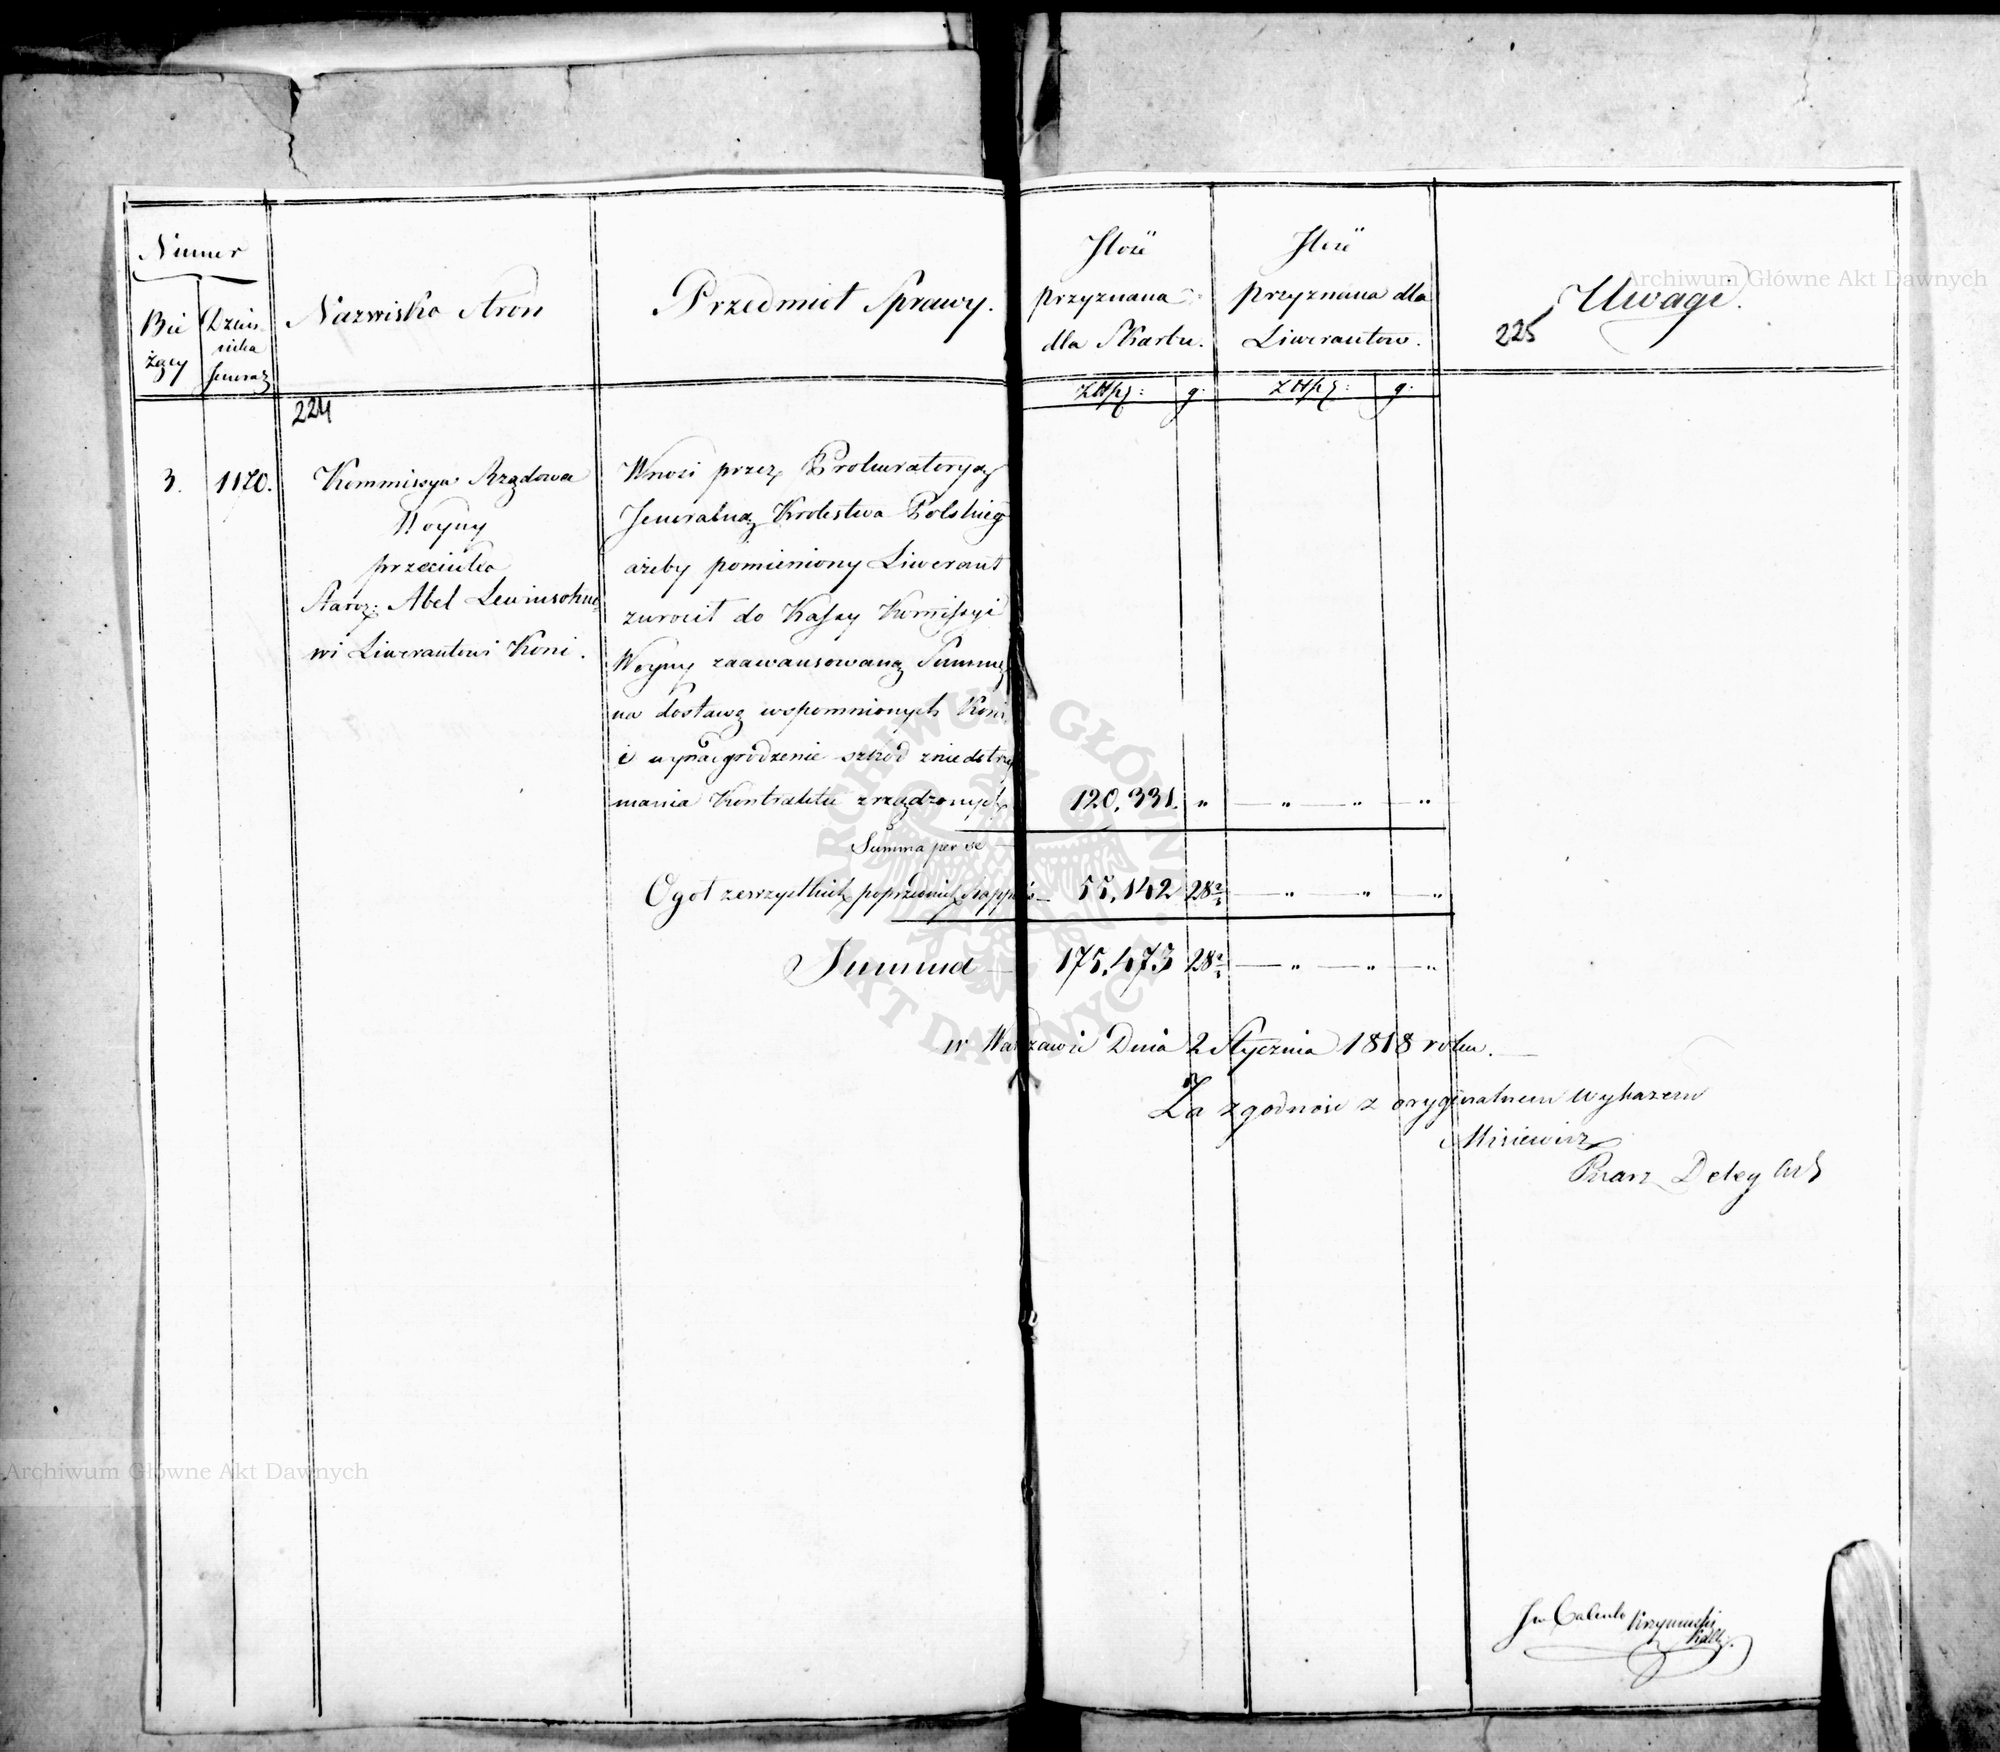 Numer
Bie
żący
Dzien
nika
Jeneral
Nazwisko Stron
Przedmiot Sprawy.
Ilość
przyznana
dla Skarbu.
Ilość
przyznana dla
Liwerantow.
Uwagi.
225
Złłpl: g.
Złłpl: g.
224
3. 1170.
Kommissya Rządowa
Woyny
przeciwko
Staroz: Abel Lewinsohno
wi Liwerantowi Koni.
Wnosi przez Prokuratoryą
Jeneralną Krolestwa Polskieg
ażeby pomieniony Liwerant
zwrocił do Kassy Kommissyi
Woyny zaawansowaną Summę
na dostawę wspomnionych Koni
i wynagrodzenie szkod z niedotrzy
mania Kontraktu zrządzonych
120,331. " — " — " — "
Summa per se
Ogoł zewszystkich poprzednich
55,142 28 — " — " — "
Summa — 175,473 28 — " — " — "
w Warszawie Dnia 2 Stycznia 1818 roku.
Za zgodność z oryginalnem wykazem
Misiewicz
Pisarz Deleg
Krzymuski
Archiwum Główne Akt Dawnych
Archiwum Główne Akt Dawnych
ARCHIWUM GŁÓWNE
AKT DAWNYCH